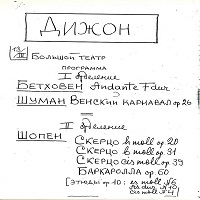 ДИЖОН
13/III Большой театр
программа
I отделение
Бетховен Andante F dur
Шуман Венский карнавал op 26
II отделение
Шопен
Скерцо h moll op. 20
Скерцо b moll op. 31
Скерцо cis moll op 39
Баркаролла op. 60
[Этюды op 10: es moll №6
As dur №10
cis moll №4]